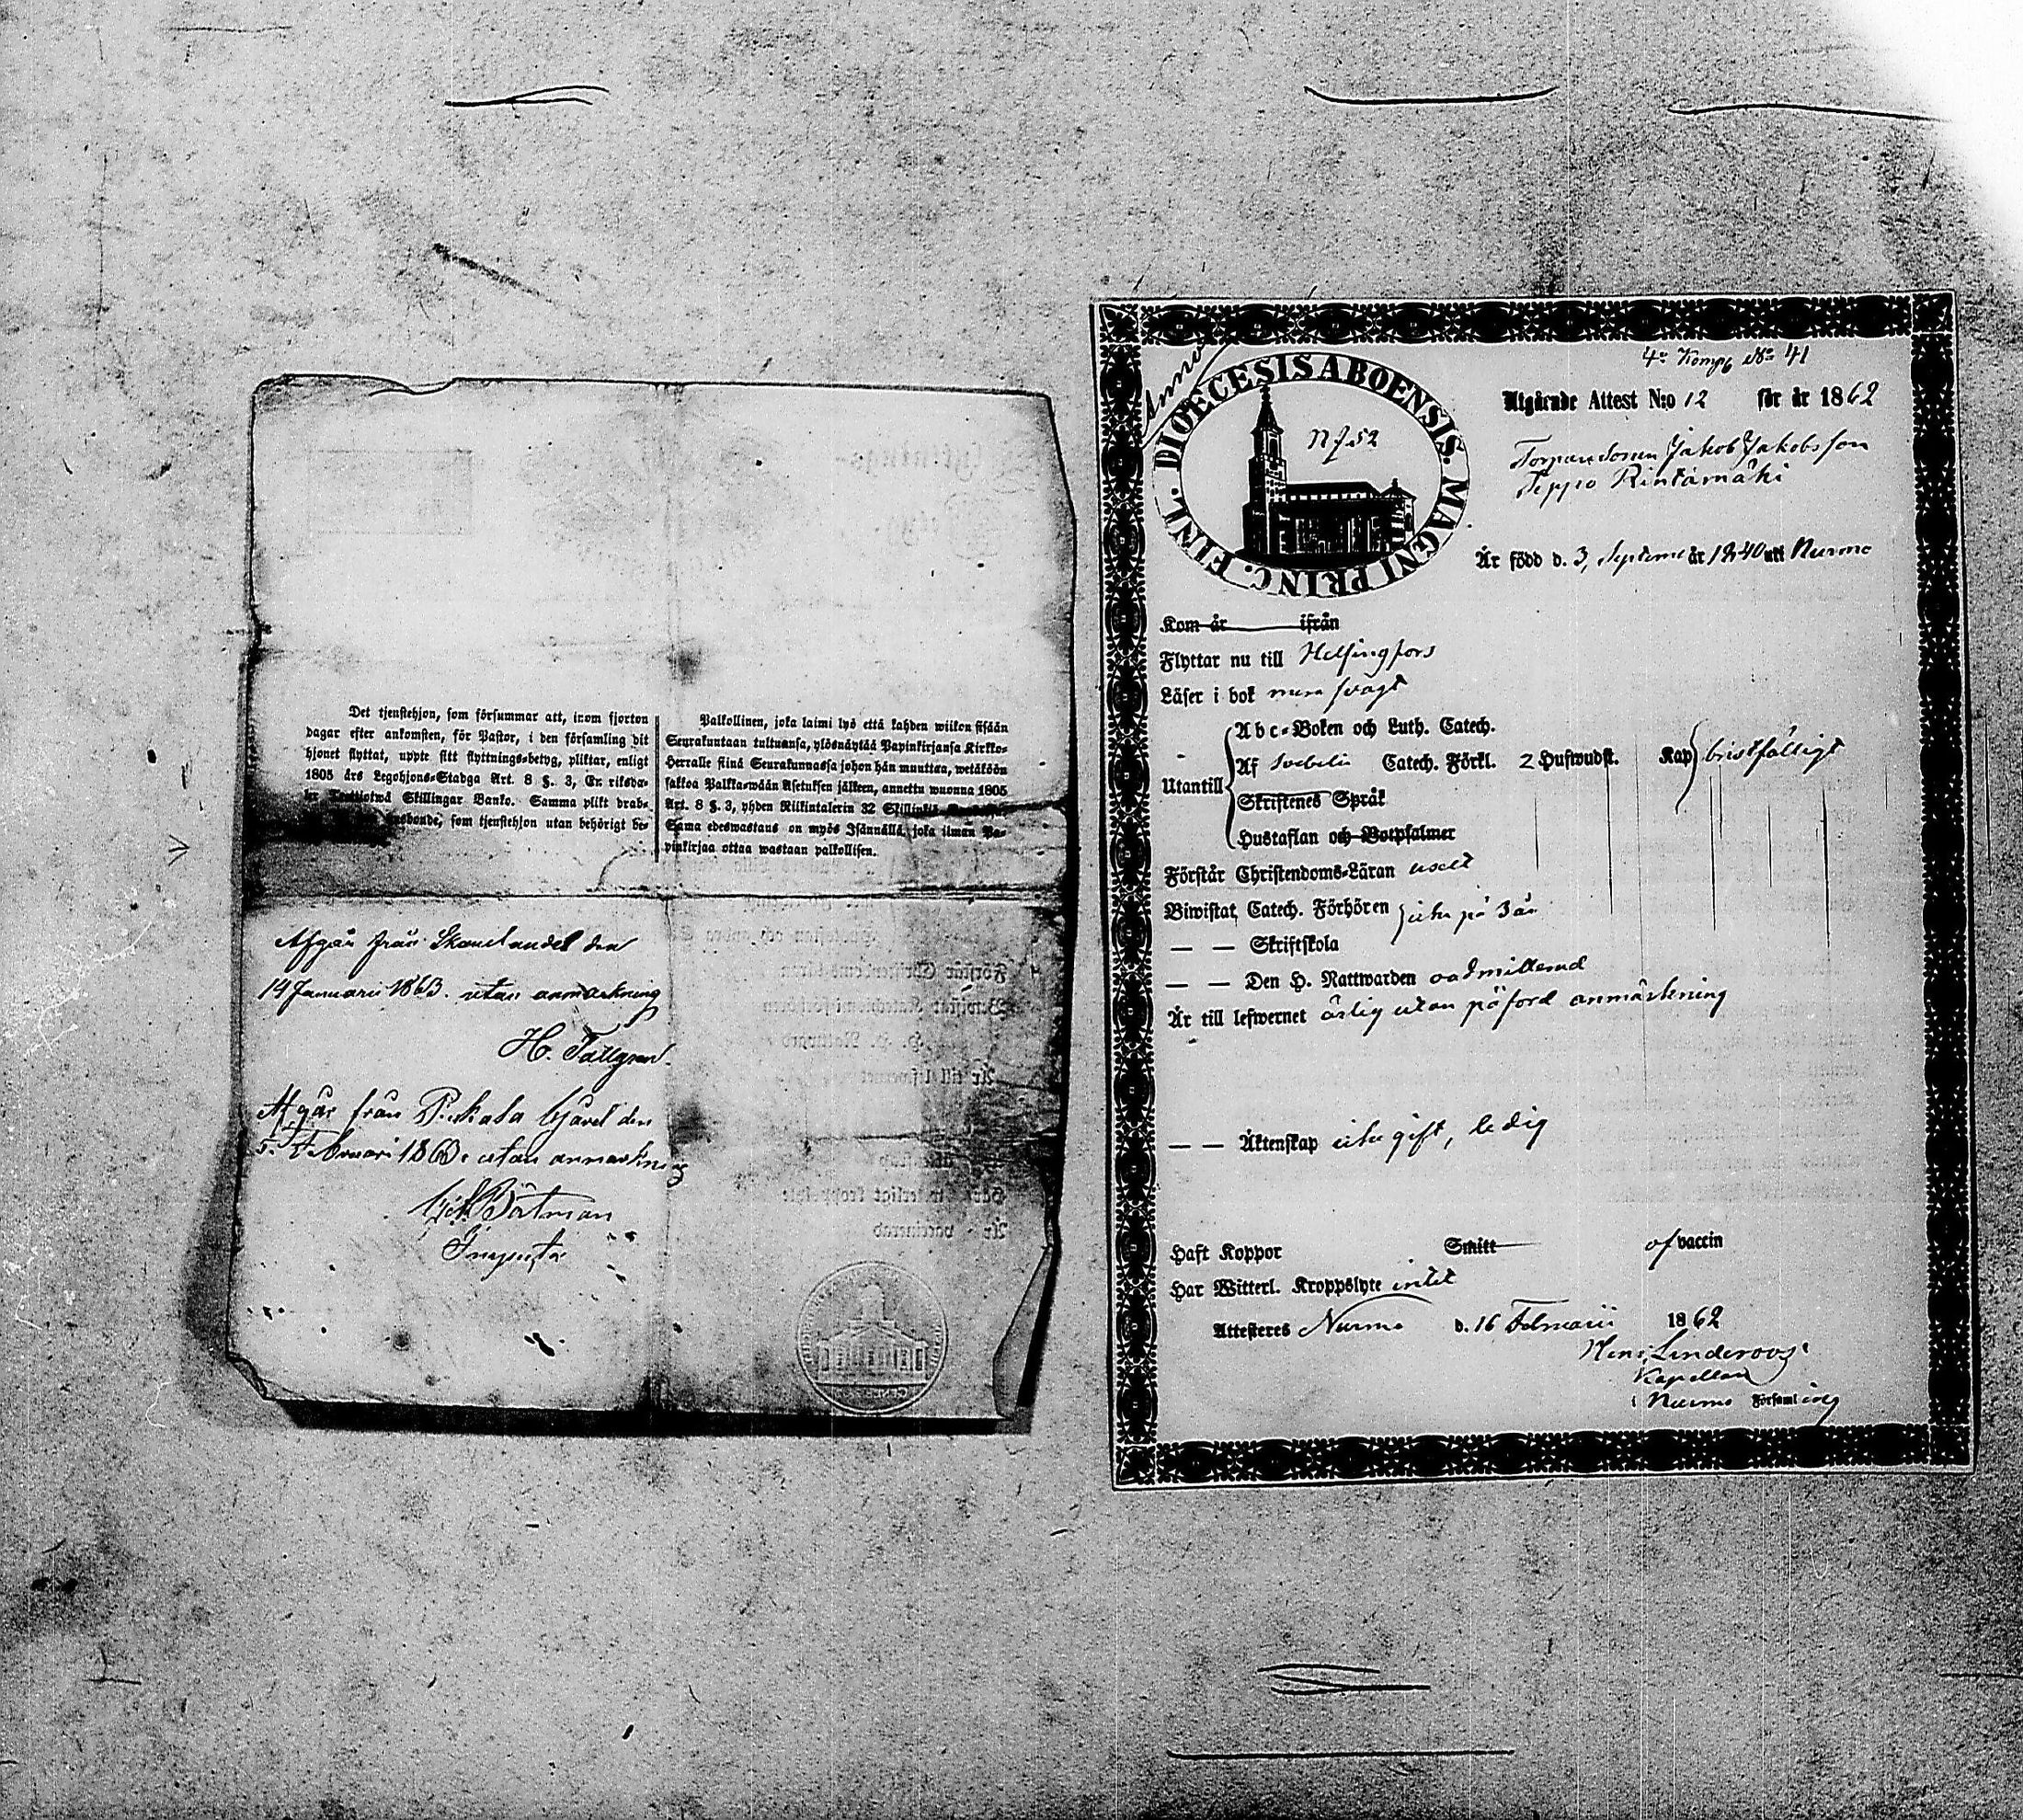 Det tjenstehjon, som försummar att, inom fjorton
dagar efter ankomsten, för Pastor, i den församling dit
hjonet flyttat, uppte sitt flyttnings-betyg, pliktar, enligt
1805 års Legohjons-Stadga Art. 8 §. 3, En riksda-
ler Trettiotwå Skillingar Banko. Samma plikt drab-
husbonde, som tjenstehjon utan behörigt be-
Palkollinen, joka laimi lyö että kahden wiikon sisään
Seurakuntaan tultuansa, ylösnäytää Papinkirjansa Kirkko-
Herralle siinä Seurakunnassa johon hän muuttaa, wetäköön
sakkoa Palkka-wään Asetuksen jälkeen, annettu wuonna 1805
Art. 8 §. 3, yhden Riikintalerin 32 Skillinkiä
Sama edeswastaus on myös Isännällä, joka ilman Pa-
pinkirjaa ottaa wastaan palkollisen.
Afgår från Skanslandet den
14 Januarii 1863. utan anmärkning
H. Tallgren
Afgår från den
5. Februari 1863. utan anmärkning
Båtman
DIOECESIS ABOENSIS. MAGNI PRINC. FINL.
N 52
4e Komp No 41
Utgående Attest N:o 12 för år 1862
Torparesonen Jakob Jakobsson
Seppo Rintamäki
År född d. 3 Septemb år 1840 uti Nurmo
Kom år ifrån
Flyttar nu till Helsingfors
Läser i bok svagt
Utantill
Abc-Boken och Luth. Catech.
Af Svebelii Catech. Förkl. 2 Hufwudst. Kap bristfälligt
Skriftenes Språk
Hustaflan och Botpsalmer
Förstår Christendoms-Läran uselt
Biwistat Catech. Förhören icke på 3 år
— — Skriftskola
— — Den H. Nattwarden oadmitterad
Är till lefwernet ärlig utan påförd anmärkning
— — Äktenskap icke gift, ledig
Haft Koppor Smitt af vaccin
Har Witterl. Kroppslyte intet
Attesteres Nurmo d. 16 Februarii 1862
Henr. Linderoos
Kapellan
i Nurmo Församling